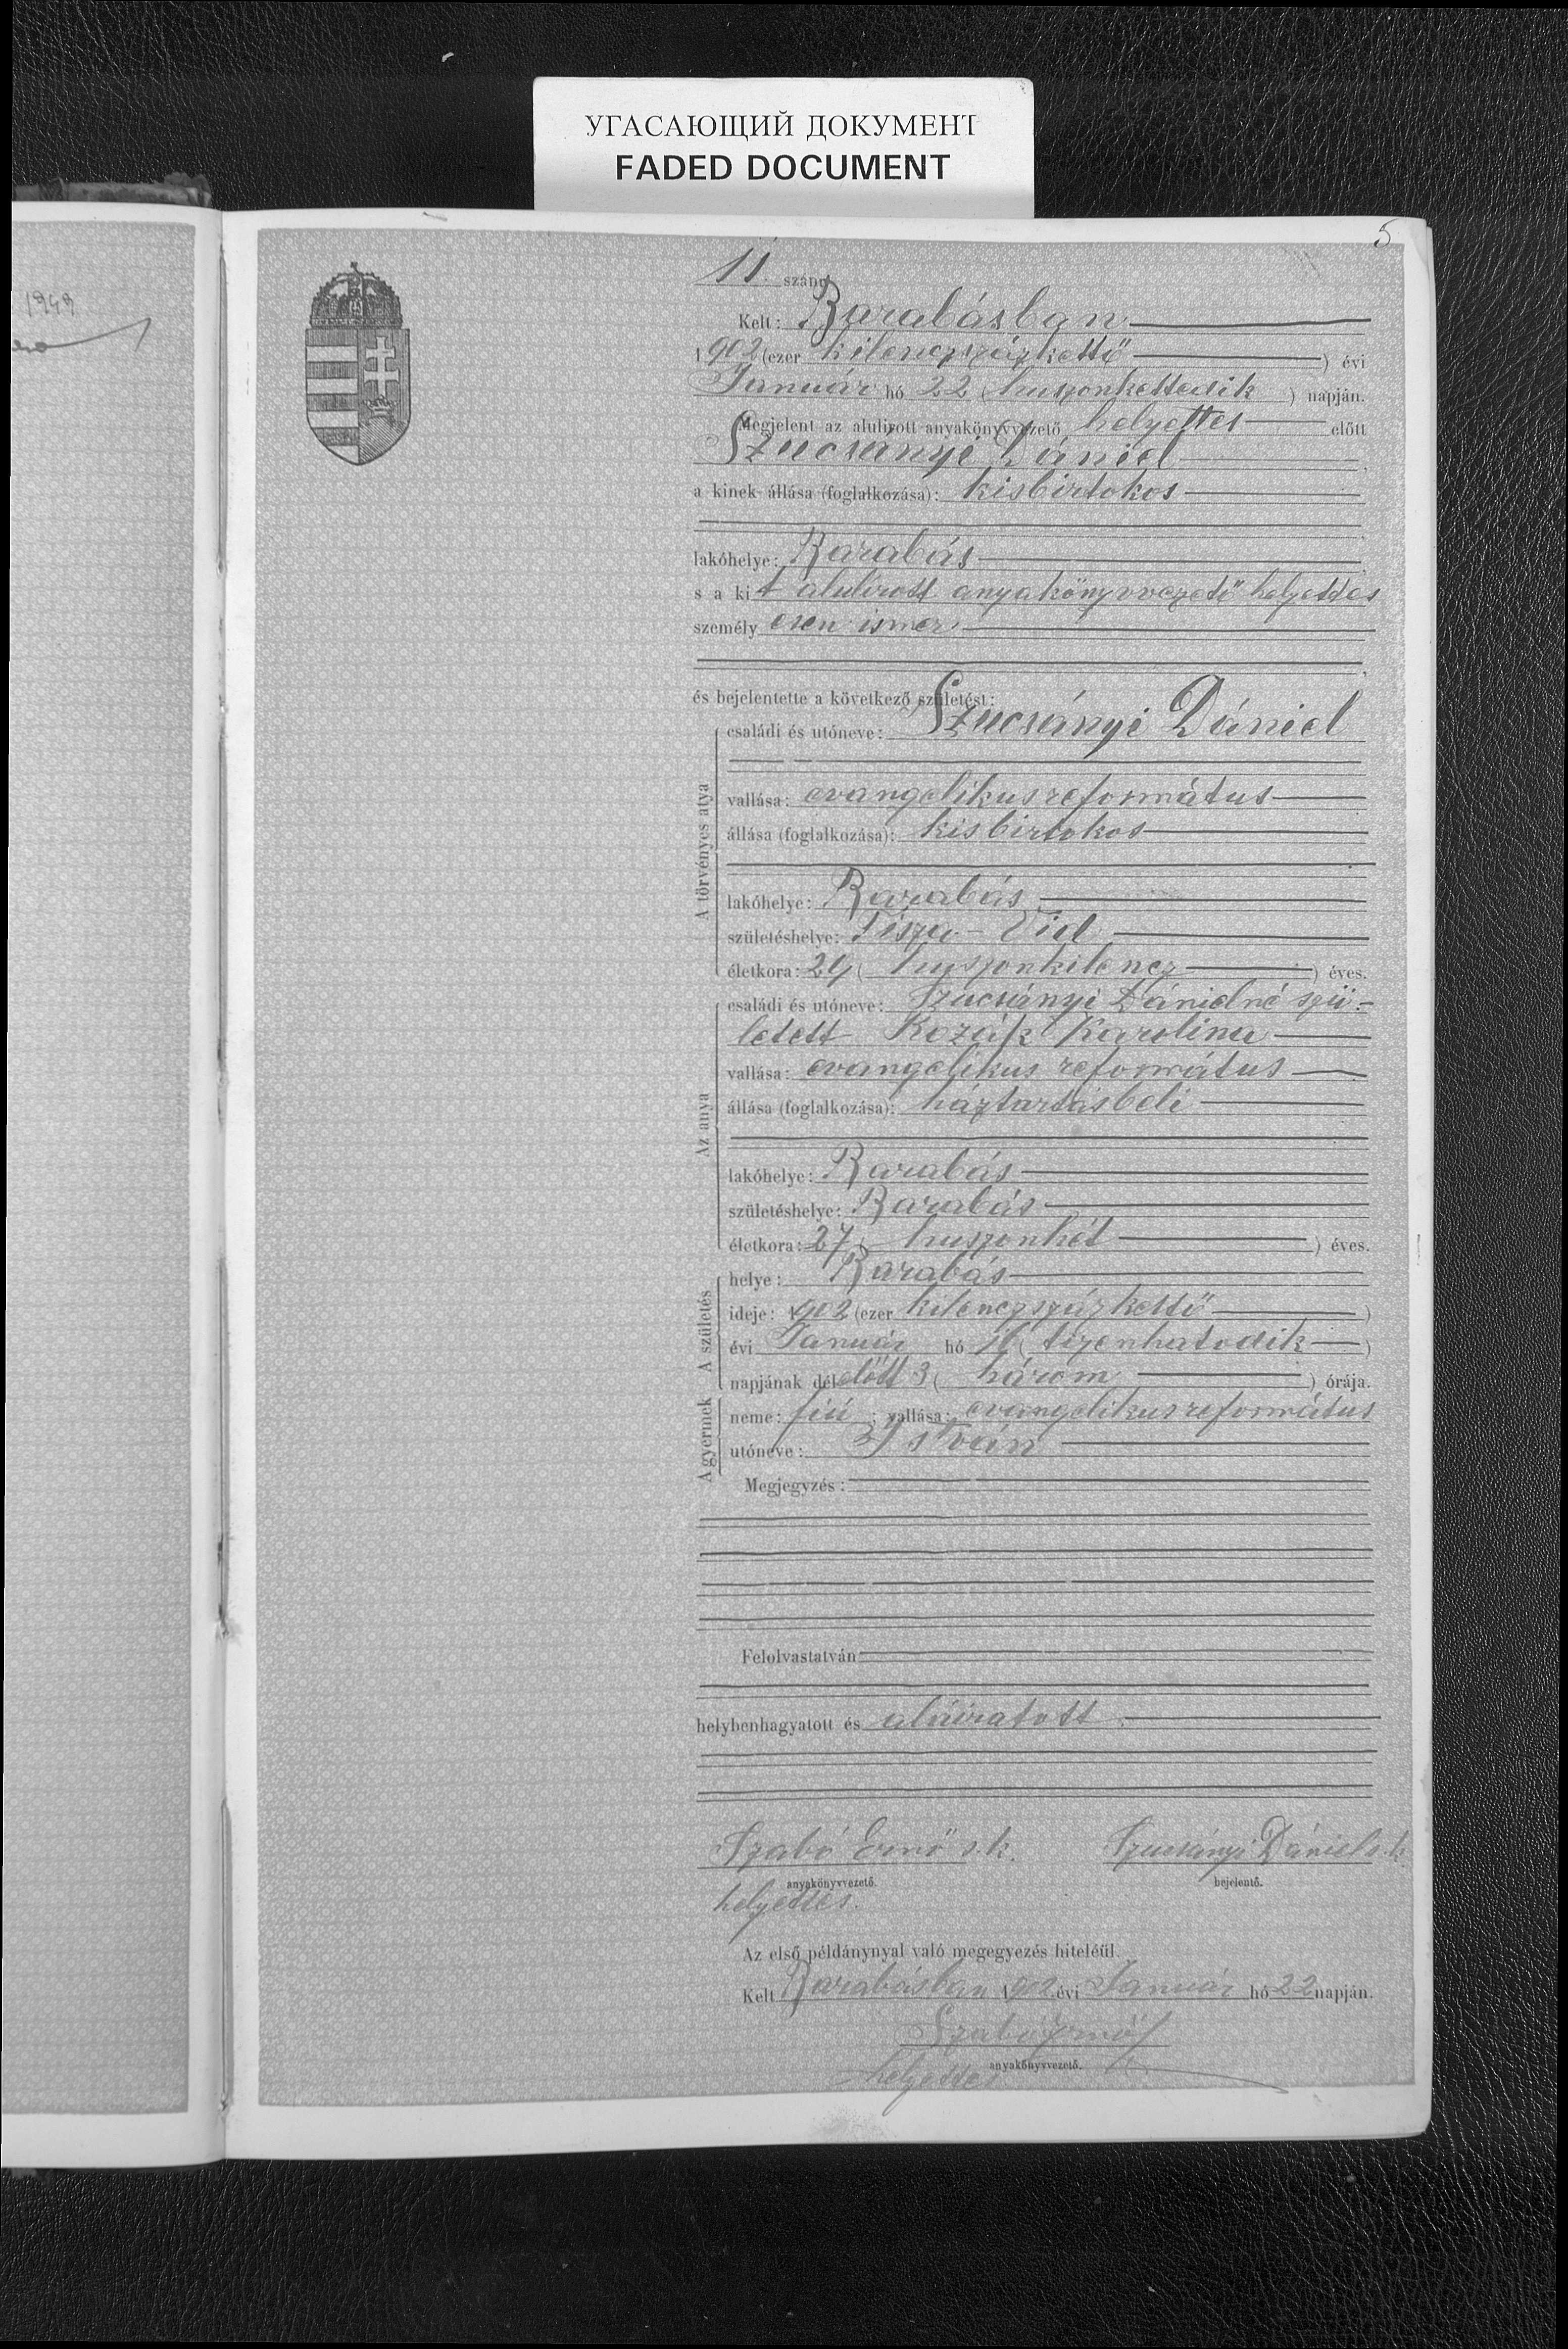 УГАСАЮЩИЙ ДОКУМЕНТ
FADED DOCUMENT
1949
5
11. szám
Kelt: Barabásban
1902 (ezer kilenczszázkettő ) évi
Január hó 22 (huszonkettedik ) napján.
Megjelent az alulirott anyakönyvvezető helyettes előtt
Szucsányi Dániel
a kinek állása (foglalkozása): kisbirtokos
lakóhelye: Barabás
s a kit alulirott anyakönyvvezető helyettes
személyesen ismer
és bejelentette a következő születést:
A törvényes atya
családi és utóneve: Szucsányi Dániel
vallása: evangelikus református
állása (foglalkozása): kisbirtokos
lakóhelye: Barabás
születéshelye: Tisza-Vid
életkora: 29 ( huszonkilencz ) éves.
Az anya
családi és utóneve: Szucsányi Dánielné szü-
letett Kozák Karolina
vallása: evangelikus református
állása (foglalkozása): háztartásbeli
lakóhelye: Barabás
születéshelye: Barabás
életkora: 27 ( huszonhét ) éves.
A születés
helye: Barabás
ideje: 1902 (ezer kilenczszázkettő )
évi Január hó 16 ( tizenhatodik )
napjának délelőtt 3 ( három ) órája.
A gyermek
neme: fiú ; vallása: evangelikus református
utóneve: István
Megjegyzés:
Felolvastatván
helybenhagyatott és aláiratott.
Szabó Ernő s.k. Szucsányi Dániel s.k.
anyakönyvvezető. bejelentő.
helyettes.
Az első példánynyal való megegyezés hiteléül.
Kelt Barabásban 1902 évi Január hó 22 napján.
Szabó Ernő
anyakönyvvezető.
helyettes